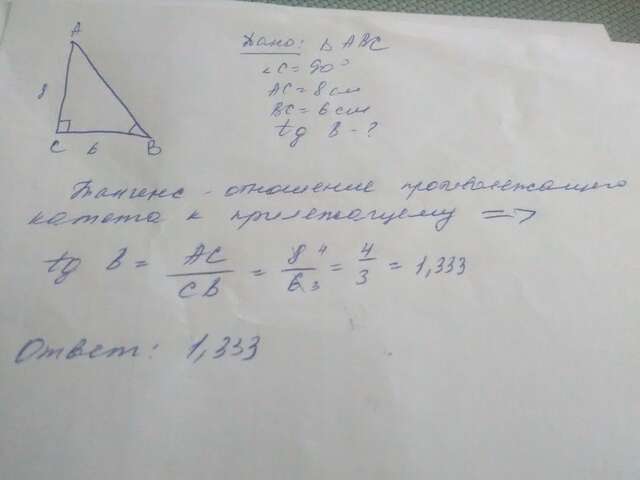 A
8
C
6
B
Дано: Δ ABC
∠C = 90°
AC = 8 см
BC = 6 см
tg B - ?
Тангенс - отношение противолежащего
катета к прилежащему =>
tg B = AC/CB = 8/6 4/3 = 4/3 = 1,333
Ответ: 1,333